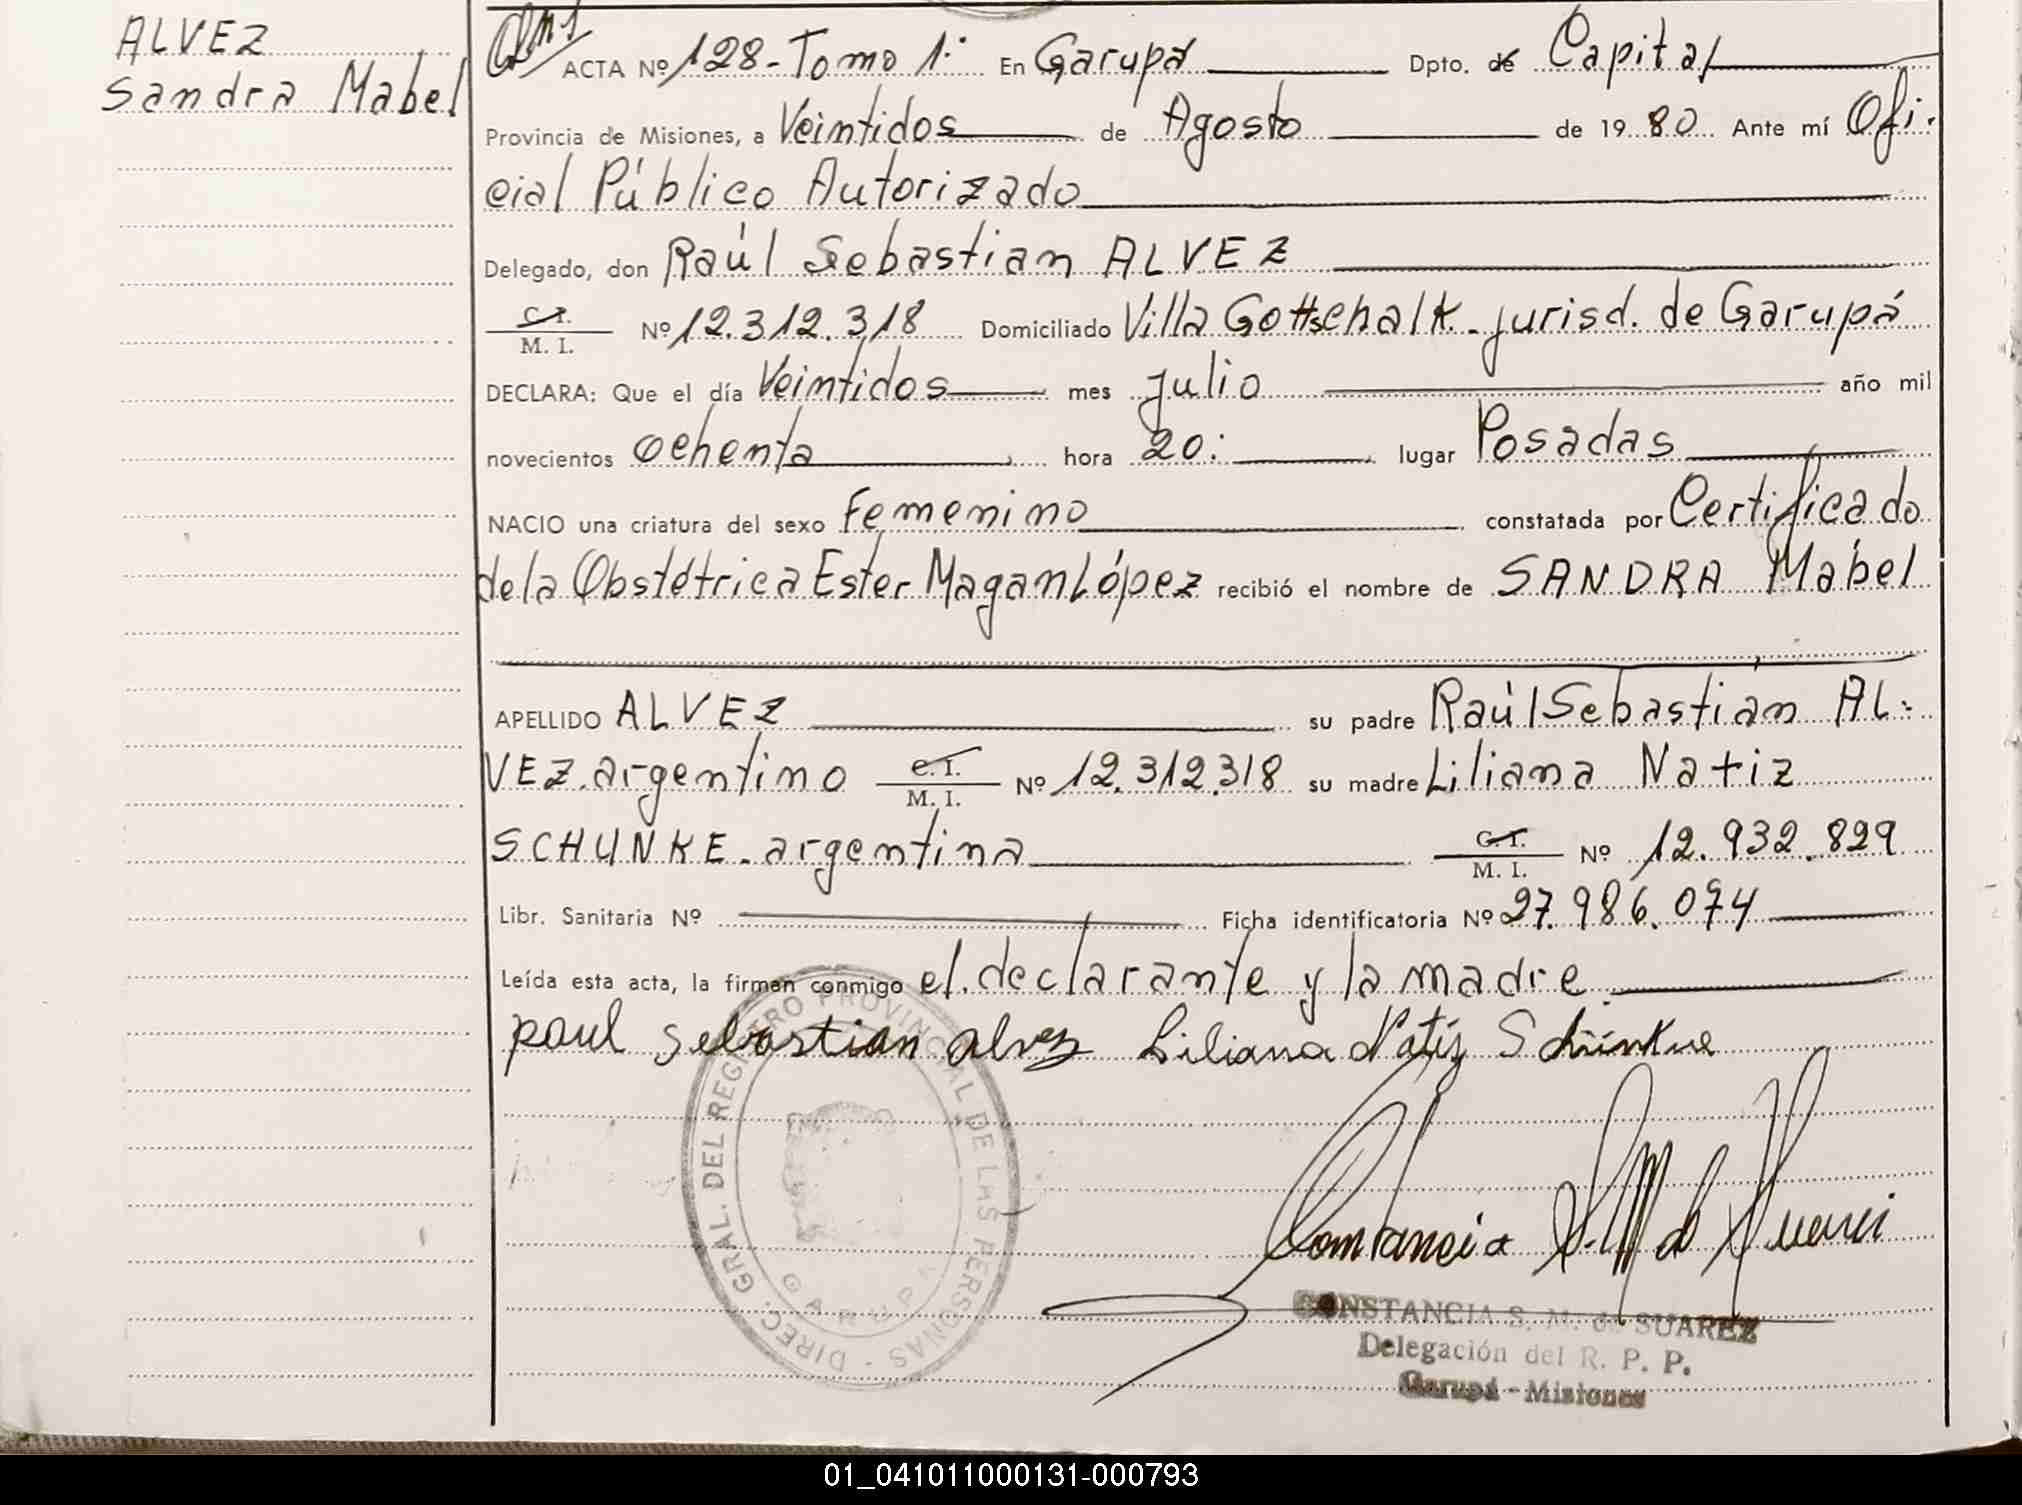 ALVEZ
Sandra Mabel
ACTA Nº 128-Tomo 1º En Garupá Dpto. de Capital
Provincia de Misiones, a Veintidos de Agosto de 1980 Ante mí Ofi-
cial Público Autorizado
Delegado, don Raúl Sebastian ALVEZ
C.I.
M. I. Nº 12.312.318 Domiciliado Villa Gottschalk-jurisd. de Garupá
DECLARA: Que el día Veintidos mes julio año mil
novecientos ochenta hora 20: lugar Posadas
NACIO una criatura del sexo Femenino constatada por Certificado
de la Obstétrica Ester Magan López recibió el nombre de SANDRA Mabel
APELLIDO ALVEZ su padre Raúl Sebastián AL-
VEZ.argentino C.I.
M. I. Nº 12.312.318 su madre Liliana Natiz
SCHUNKE-argentina C.I.
M. I. Nº 12.932.829
Libr. Sanitaria Nº Ficha identificatoria Nº 27.986.074
Leída esta acta, la firman conmigo el declarante y la madre.
Raul Sebastian Alvez Liliana Natiz Schünke
DIREC. GRAL. DEL REGISTRO PROVINCIAL DE LAS PERSONAS -
GARUPA
Constancia S. M. de Suarez
CONSTANCIA S. M. de SUAREZ
Delegación del R. P. P.
Garupá - Misiones
01_041011000131-000793